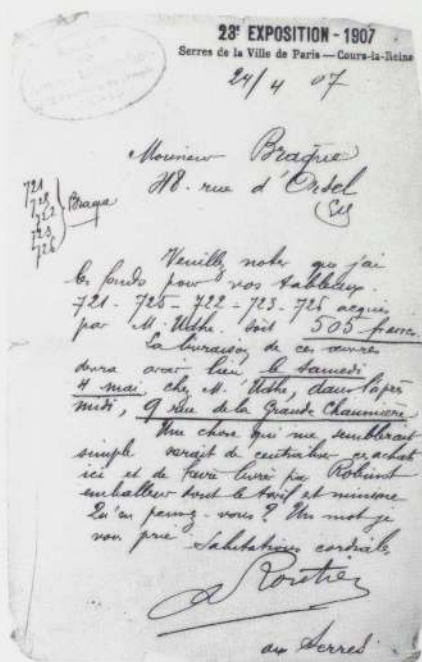 23e EXPOSITION - 1907
Serres de la Ville de Paris — Cours-la-Reine
24/4 07
Monsieur Braque
48. rue d'Orsel
721
725
722
723
726
Braque
Veuillez noter que j'ai
les fonds pour vos tableaux.
721 - 725 - 722 - 723 - 726 acquis
par M. Udhe. soit 505 francs.
La livraison de ces œuvres
devra avoir lieu le samedi
4 mai, chez M. Udhe, dans l'après
midi, 9 rue de la Grande Chaumière
Une chose qui me semblerait
simple serait de centraliser ces achats
ici et de faire livrer par Robinot
emballeur dont le tarif est minime
Qu'en pensez-vous ? Un mot je
vous prie Salutations cordiales
aux Serres